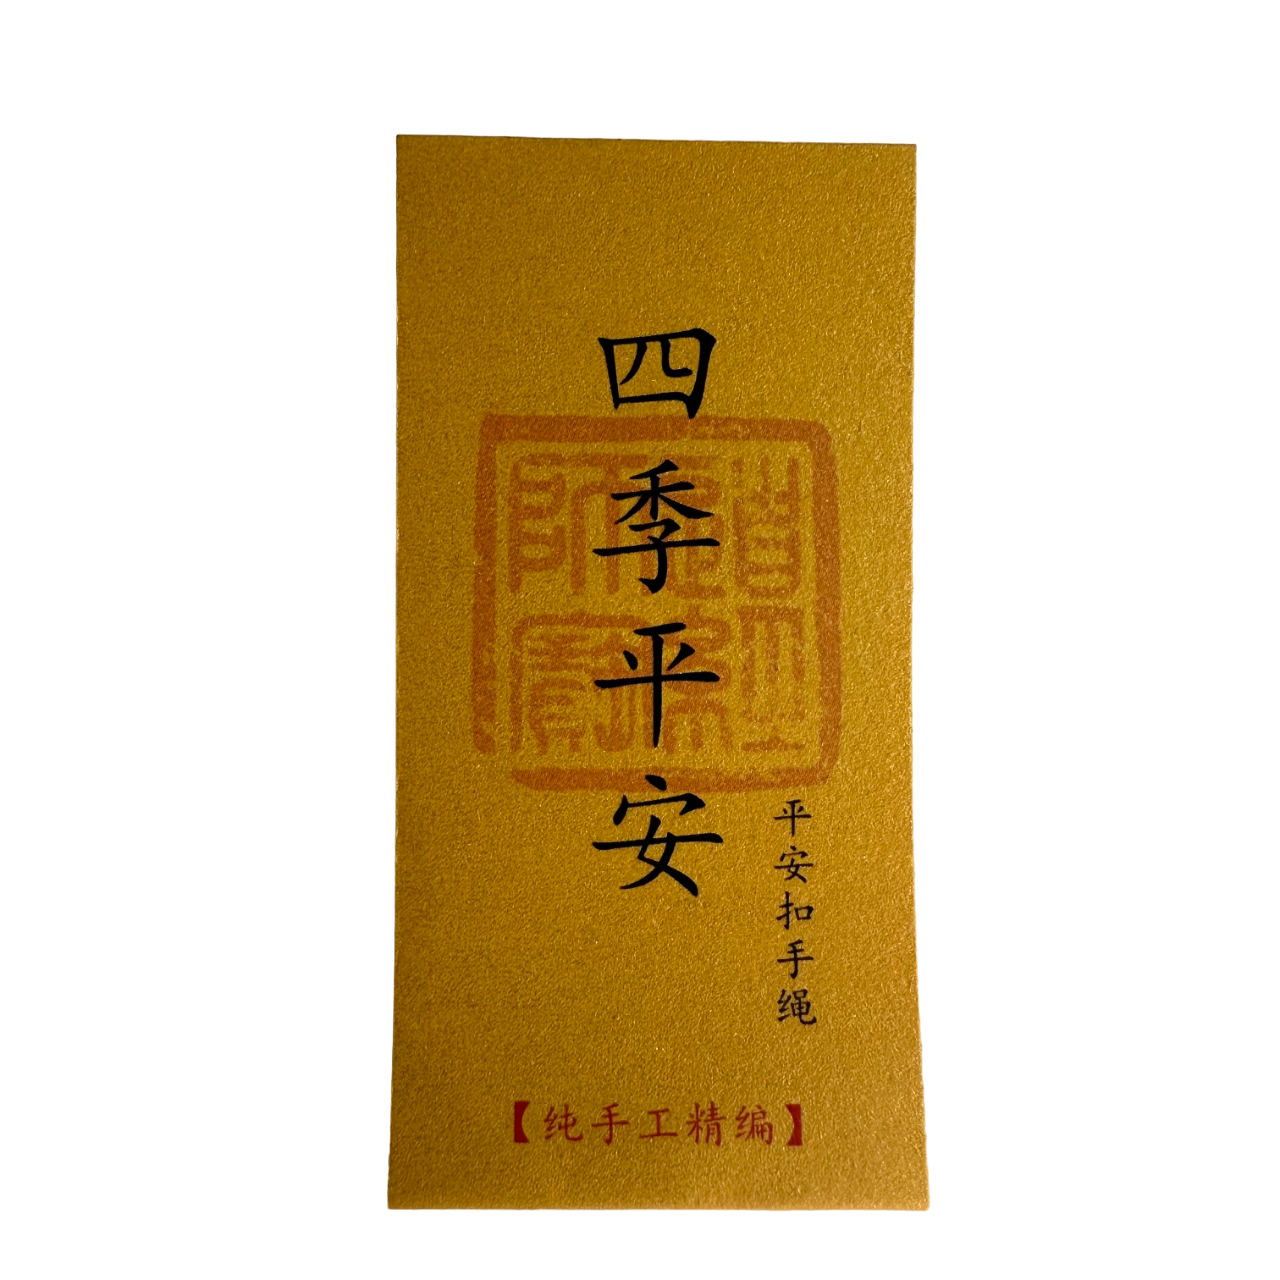 四季平安
平安扣手绳
【纯手工精编】